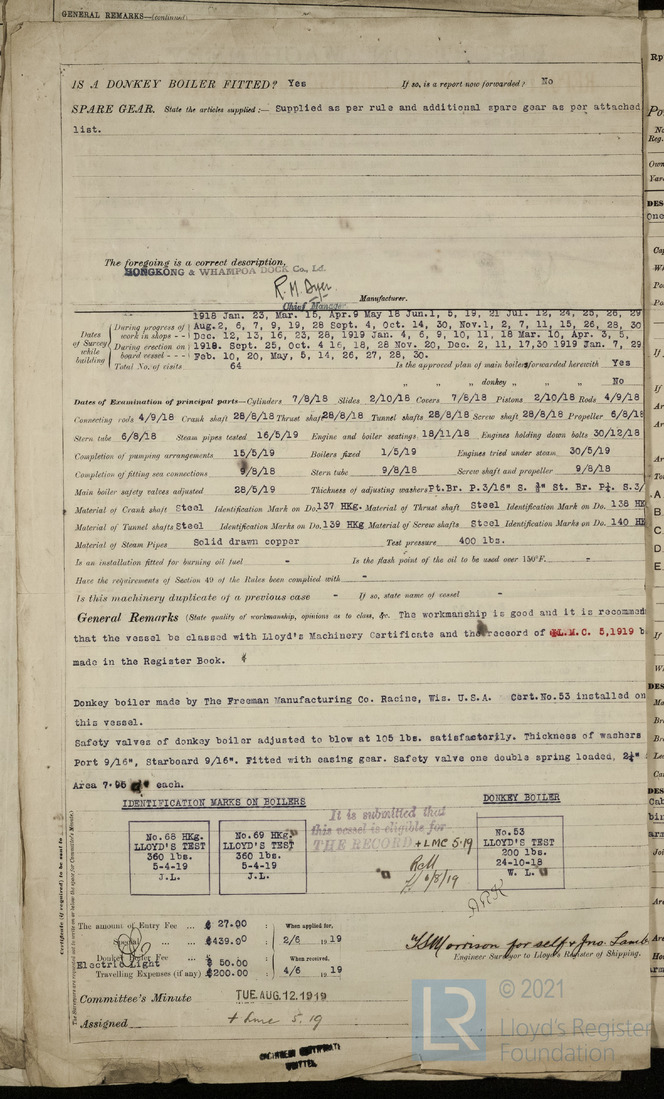 GENERAL REMARKS—(continued)
IS A DONKEY BOILER FITTED? Yes If so, is a report now forwarded? No
SPARE GEAR. State the articles supplied:— Supplied as per rule and additional spare gear as per attached
list.
The foregoing is a correct description,
HONGKONG & WHAMPOA DOCK Co., Ld.
R. M. Dyer.
Chief Manager Manufacturer.
1918 Jan. 23, Mar. 15, Apr.9 May 18 Jun.1, 5, 19, 21 Jul. 12, 24, 25, 26, 29
Dates of Survey while building
During progress of work in shops - - Aug.2, 6, 7, 9, 19, 28 Sept. 4, Oct. 14, 30, Nov.1, 2, 7, 11, 15, 26, 28, 30
Dec. 12, 13, 16, 23, 28, 1919 Jan. 4, 6, 9, 10, 11, 18 Mar. 10, Apr. 3, 5,
During erection on board vessel - - - 1918. Sept. 25, Oct. 4 16, 18, 28 Nov. 20, Dec. 2, 11, 17,30 1919 Jan. 7, 29
Feb. 10, 20, May, 5, 14, 26, 27, 28, 30.
Total No. of visits 64 Is the approved plan of main boilers forwarded herewith Yes
" " donkey " " No
Dates of Examination of principal parts—Cylinders 7/8/18 Slides 2/10/18 Covers 7/8/18 Pistons 2/10/18 Rods 4/9/18
Connecting rods 4/9/18 Crank shaft 28/8/18 Thrust shaft 28/8/18 Tunnel shafts 28/8/18 Screw shaft 28/8/18 Propeller 6/8/18
Stern tube 6/8/18 Steam pipes tested 16/5/19 Engine and boiler seatings 18/11/18 Engines holding down bolts 30/12/18
Completion of pumping arrangements 15/5/19 Boilers fixed 1/5/19 Engines tried under steam 30/5/19
Completion of fitting sea connections 9/8/18 Stern tube 9/8/18 Screw shaft and propeller 9/8/18
Main boiler safety valves adjusted 28/5/19 Thickness of adjusting washers Pt.Br. P.3/16" S. ⅜" St. Br. P¼. S.3/
Material of Crank shaft Steel Identification Mark on Do. 137 HKg. Material of Thrust shaft Steel Identification Mark on Do. 138 HK
Material of Tunnel shafts Steel Identification Marks on Do. 139 HKg Material of Screw shafts Steel Identification Marks on Do. 140 HK
Material of Steam Pipes Solid drawn copper Test pressure 400 lbs.
Is an installation fitted for burning oil fuel - Is the flash point of the oil to be used over 150°F. -
Have the requirements of Section 49 of the Rules been complied with -
Is this machinery duplicate of a previous case - If so, state name of vessel -
General Remarks (State quality of workmanship, opinions as to class, &c. The workmanship is good and it is recommen
that the vessel be classed with Lloyd's Machinery Certificate and the receord of L.M.C. 5,1919 b
made in the Register Book.
Donkey boiler made by The Freeman Manufacturing Co. Racine, Wis. U.S.A. Cert.No.53 installed on
this vessel.
Safety valves of donkey boiler adjusted to blow at 105 lbs. satisfactorily. Thickness of washers
Port 9/16", Starboard 9/16". Fitted with easing gear. Safety valve one double spring loaded, 2¼"
Area 7.95 each.
IDENTIFICATION MARKS ON BOILERS
No.68 HKg.
LLOYD'S TEST
360 lbs.
5-4-19
J.L.
No.69 HKg.
LLOYD'S TEST
360 lbs.
5-4-19
J.L.
It is submitted that
this vessel is eligible for
THE RECORD + LMC 5.19
6/8/19
DONKEY BOILER
No.53
LLOYD'S TEST
200 lbs.
24-10-18
W. L.
Certificate (if required) to be sent to
The amount of Entry Fee ... $ 27.00 When applied for,
Special ... $439.00 2/6 1919
Donkey Boiler Fee
Electric Light $ 50.00 When received,
Travelling Expenses (if any) $200.00 4/6 1919
Engineer Surveyor to Lloyd's Register of Shipping.
Committee's Minute TUE. AUG. 12. 1919
Assigned + Lmc 5.19
WRITTEN
LR
© 2021
Lloyd's Register
Foundation